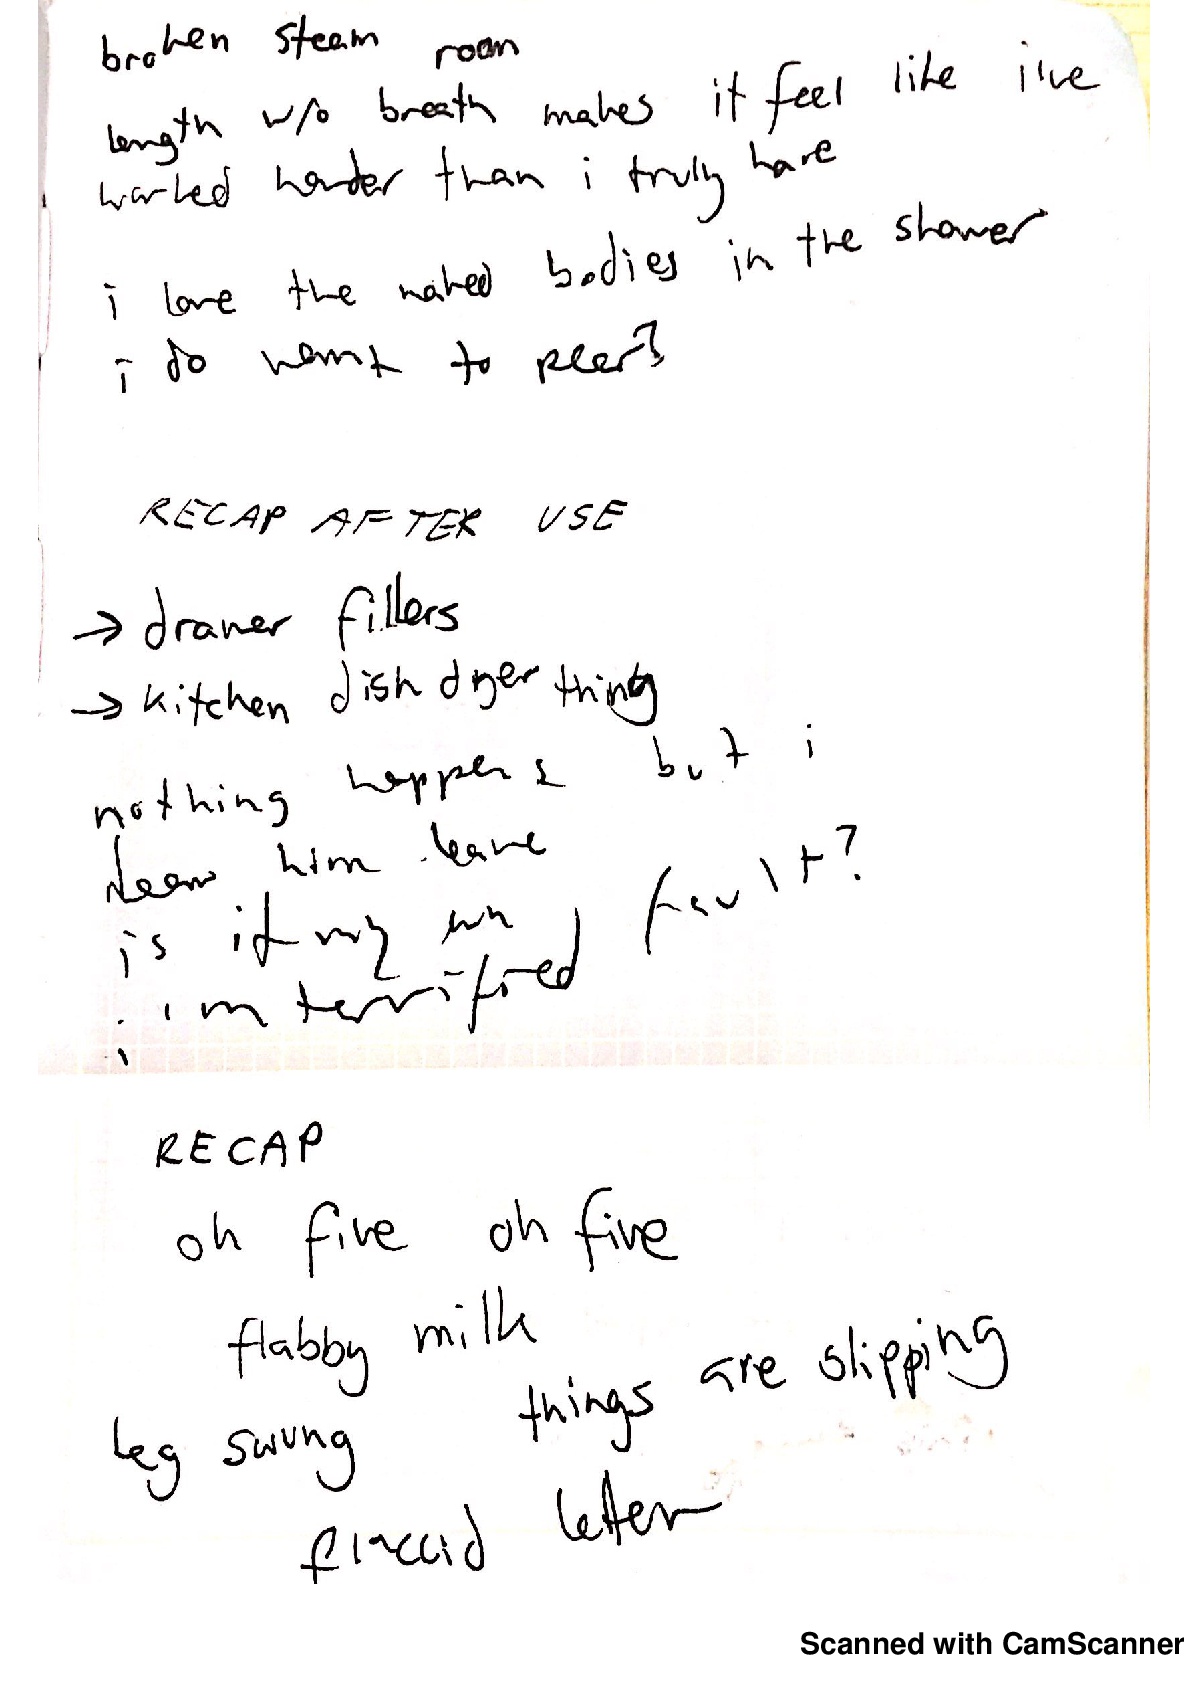 broken steam room
length w/o breath makes it feel like i've
worked harder than i truly have
i love the naked bodies in the shower
i do want to peer?
RECAP AFTER USE
→ drawer fillers
→ kitchen dish dryer thing
nothing happens but i
him leave
is it my own fault?
i'm terrified
i
RECAP
oh five oh five
flabby milk
things are slipping
leg swung
flaccid letter
Scanned with CamScanner